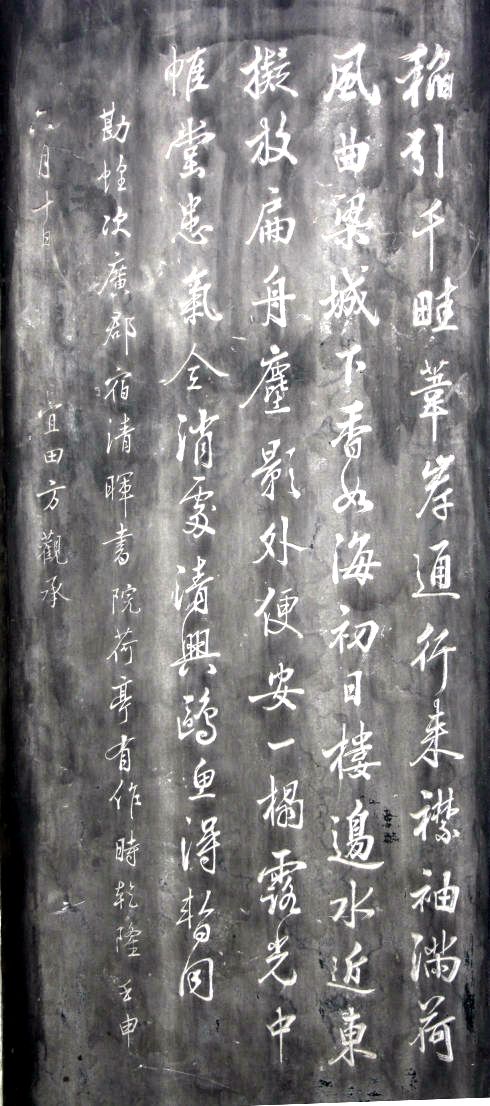 稻引千畦葦岸通行来襟袖滿荷
風曲梁城下香如海初日樓邊水近東
擬放扁舟塵影外便安一榻露光中
帷堂患氣全消處清興鷗魚得暫同
勘蝗次廣郡宿清暉書院荷亭有作時乾隆壬申
六月十日 宜田方觀承